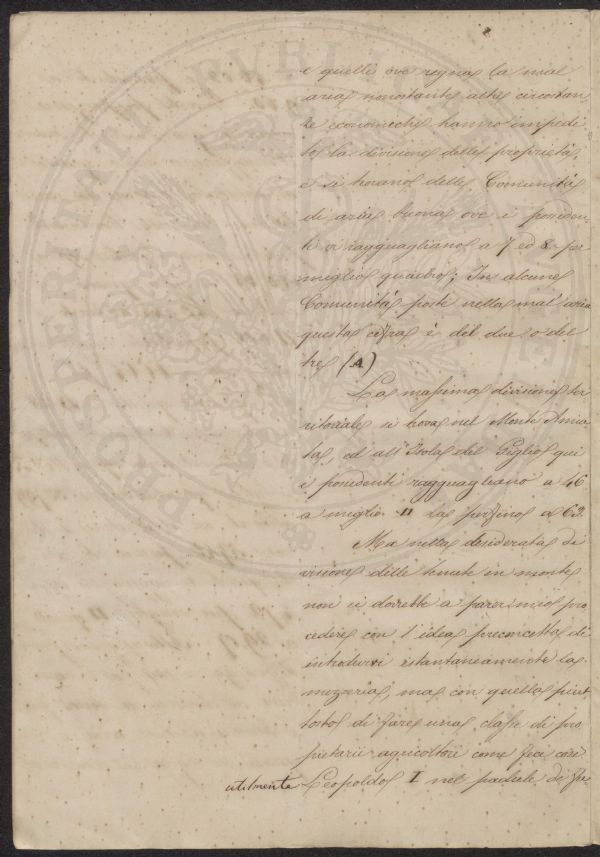 e quelli ove regna la mal
aria nonostante altre circostan
ze economiche hanno impedi
to la divisione delle proprietà,
e si trovano delle Comunità
di aria buona ove i possiden
ti si ragguagliano a 7 ed 8 per
miglio quadro; In alcune
Comunità poste nella mal'aria
questa cifra è del due o del
tre (A)
La massima divisione ter
ritoriale si trova nel Monte Amia
ta, ed all'Isola del Giglio qui
i possidenti ragguagliano a 46
a miglio là perfino a 63.
Ma nella desiderata di
visione delle tenute in monte
non si dovrebbe a parer mio pro
cedere con l'idea preconcetta di
introdurvi istantaneamente la
mezzeria, ma con quella piut
tosto di fare una classe di pro
prietarii agricoltori come fece così
utilmente Leopoldo I nel padule di Fu